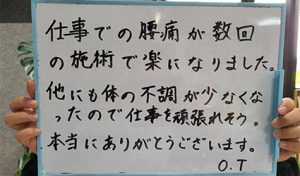 仕事での腰痛が数回
の施術で楽になりました。
他にも体の不調が少なくな
ったので仕事を頑張れそう。
本当にありがとうございます。
O.T